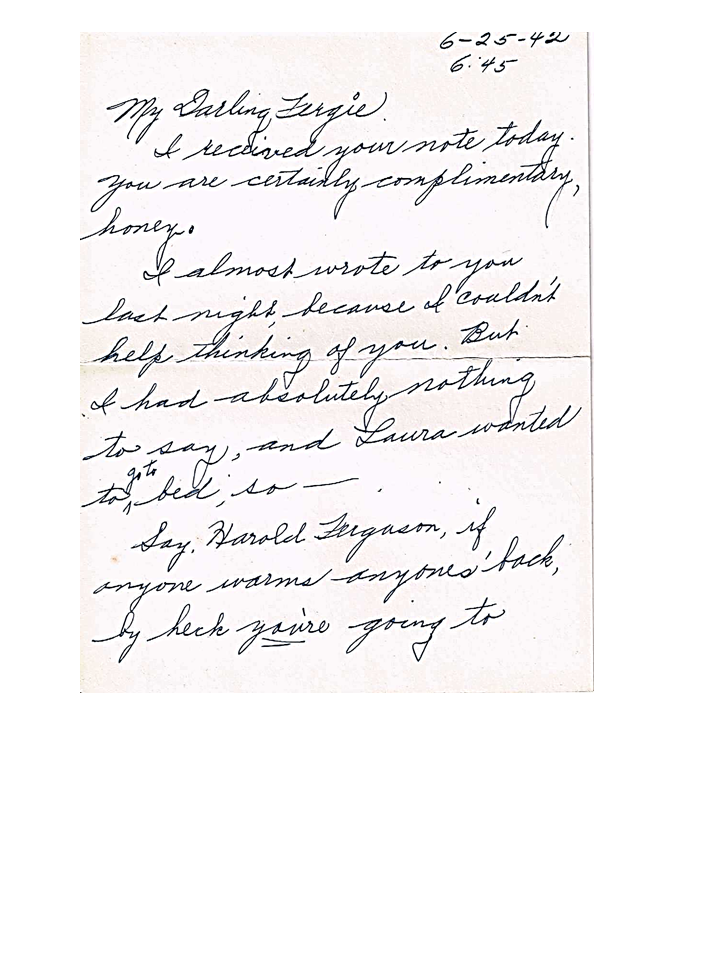 6-25-42
6:45
My Darling Fergie.
I received your note today.
You are certainly complimentary,
honey.
I almost wrote to you
last night, because I couldn't
help thinking of you. But
I had absolutely nothing
to say, and Laura wanted
go to
to bed, so —
Say, Harold Ferguson, if
anyone warms anyones' back,
by heck you're going to